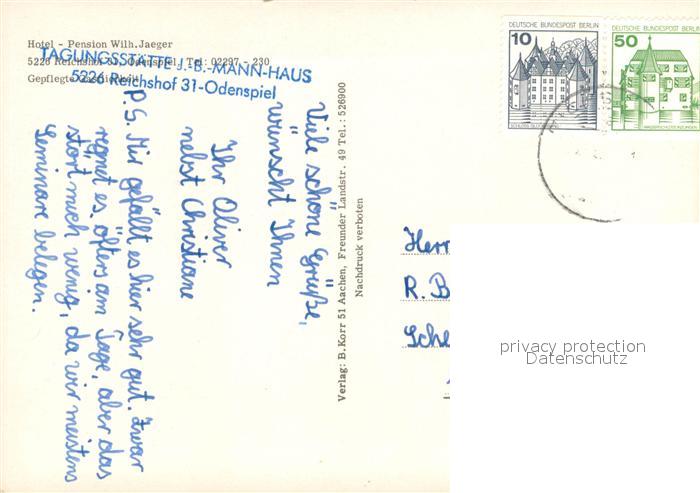 Hotel - Pension Wilh. Jaeger
5226 Reichshof 31, Odenspiel, Tel: 02297 - 230
Gepflegte
TAGUNGSSTÄTTE J.-B.-MANN-HAUS
5226 Reichshof 31-Odenspiel
Viele schöne Grüße,
wünscht Ihnen
Ihr Oliver
nebst Christiane
P.S. Mir gefällt es hier sehr gut. Zwar
regnet es öfters am Tage, aber das
stört mich wenig, da wir meistens
Seminare belegen.
Verlag: B. Korr 51 Aachen, Freunder Landstr. 49 Tel.: 526900
Nachdruck verboten
DEUTSCHE BUNDESPOST BERLIN
10
DEUTSCHE BUNDESPOST BERLIN
50
WASSERSCHLOSS INZLINGEN
Herr
R. B
Sche
privacy protection
Datenschutz